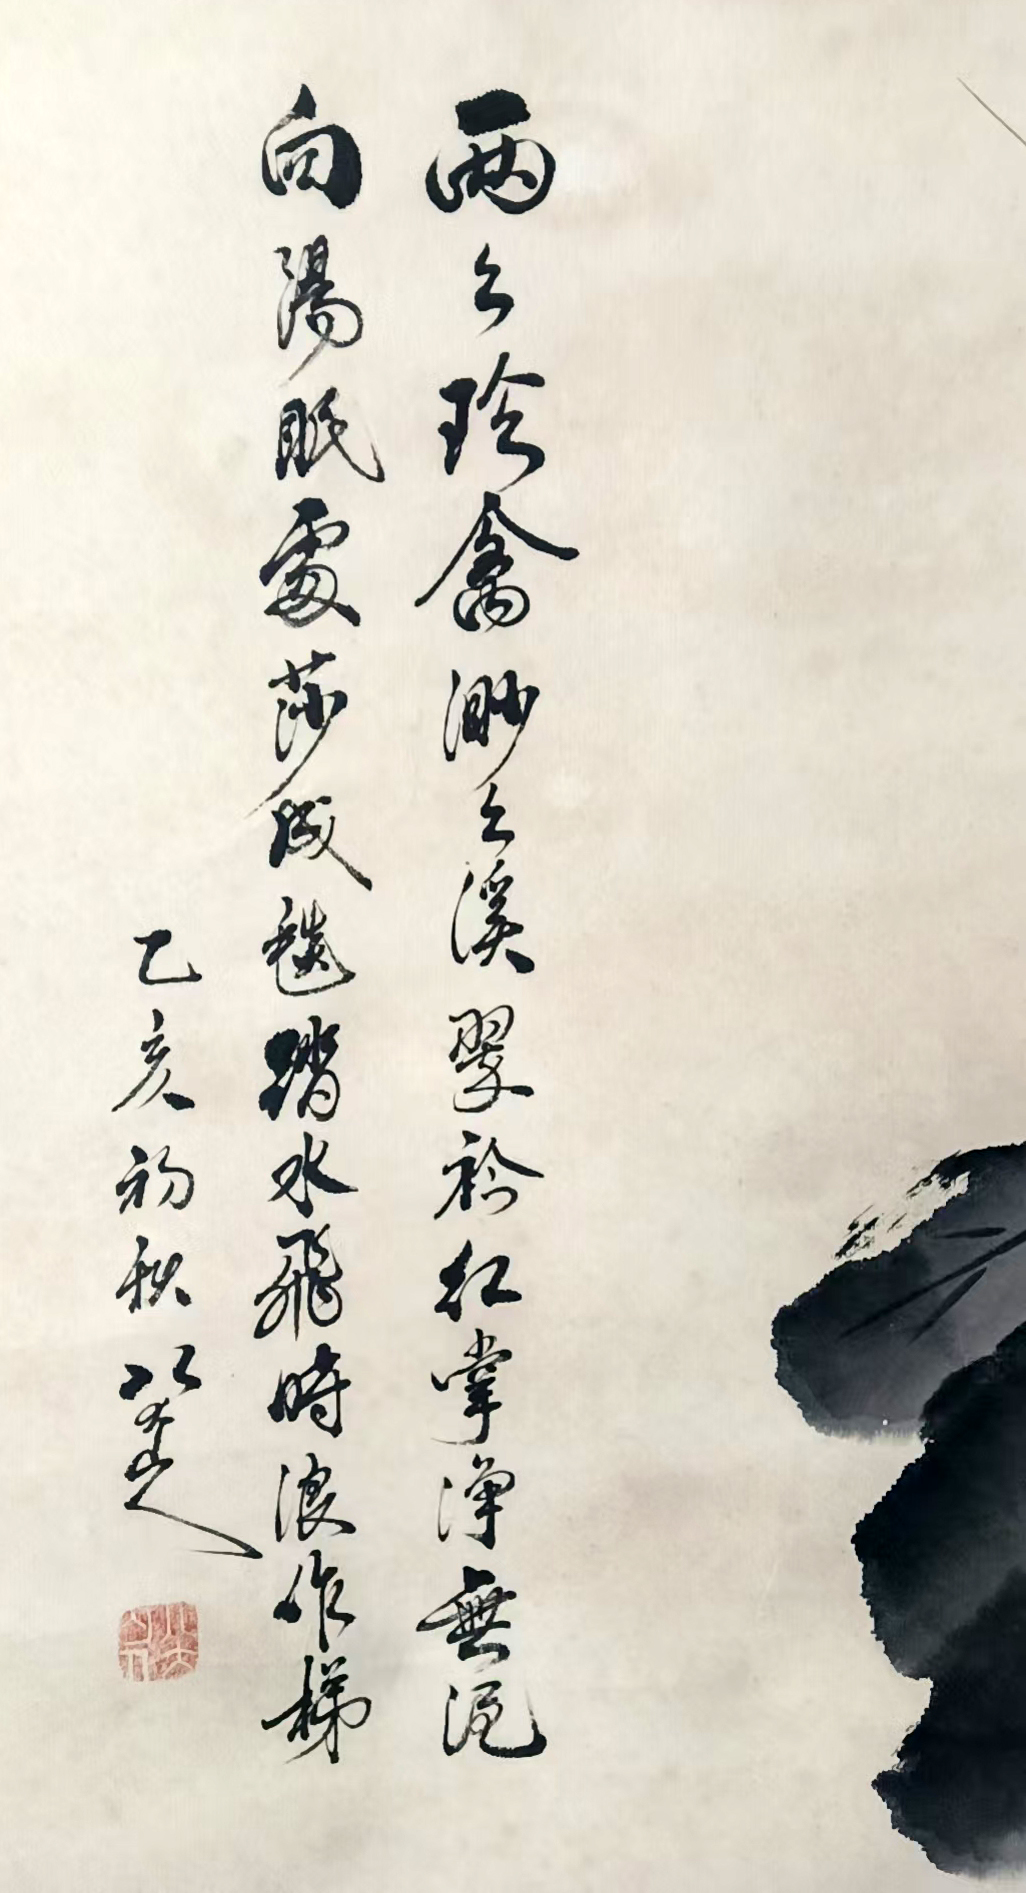 兩々珍禽渺々溪翠衿紅掌淨無泥
向陽眠處莎成毯踏水飛時浪作梯
乙亥初秋八大山人